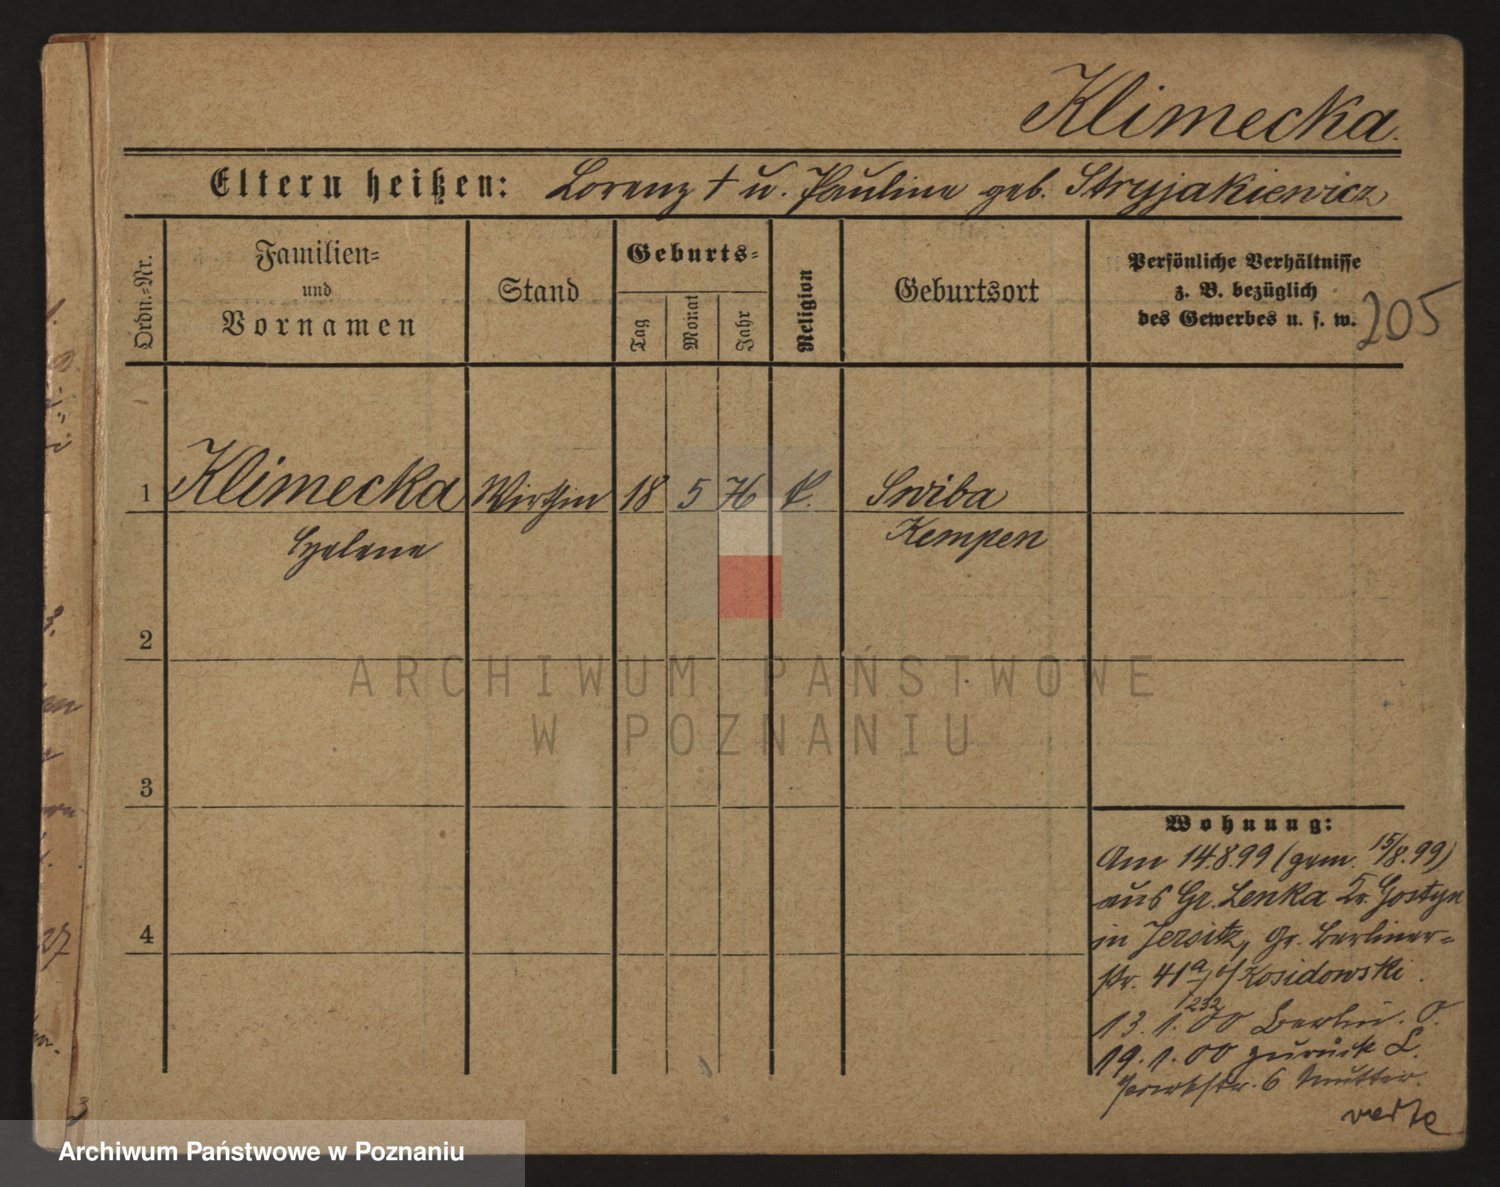 Klimecka.
Eltern heißen: Lorenz † u. Pauline geb. Stryjakiewicz
Ordn.-Nr.
Familien- und Vornamen
Stand
Geburts-
Tag
Monat
Jahr
Religion
Geburtsort
Persönliche Verhältnisse
z. B. bezüglich
des Gewerbes u. s. w.
205
1 Klimecka Wirthin 18 5 76 k. Swiba
Helene Kempen
2
3
4
Wohnung:
Am 14.8.99 (gem. 15/8.99)
aus Gr. Lenka Kr. Gostyn
in Jersitz, Gr. Berliner-
str. 41a b/ Kosidowski.
1232
13.1.00 Berlin. O.
19.1.00 zurück L.
6 Mutter.
verte
ARCHIWUM PAŃSTWOWE
W POZNANIU
Archiwum Państwowe w Poznaniu